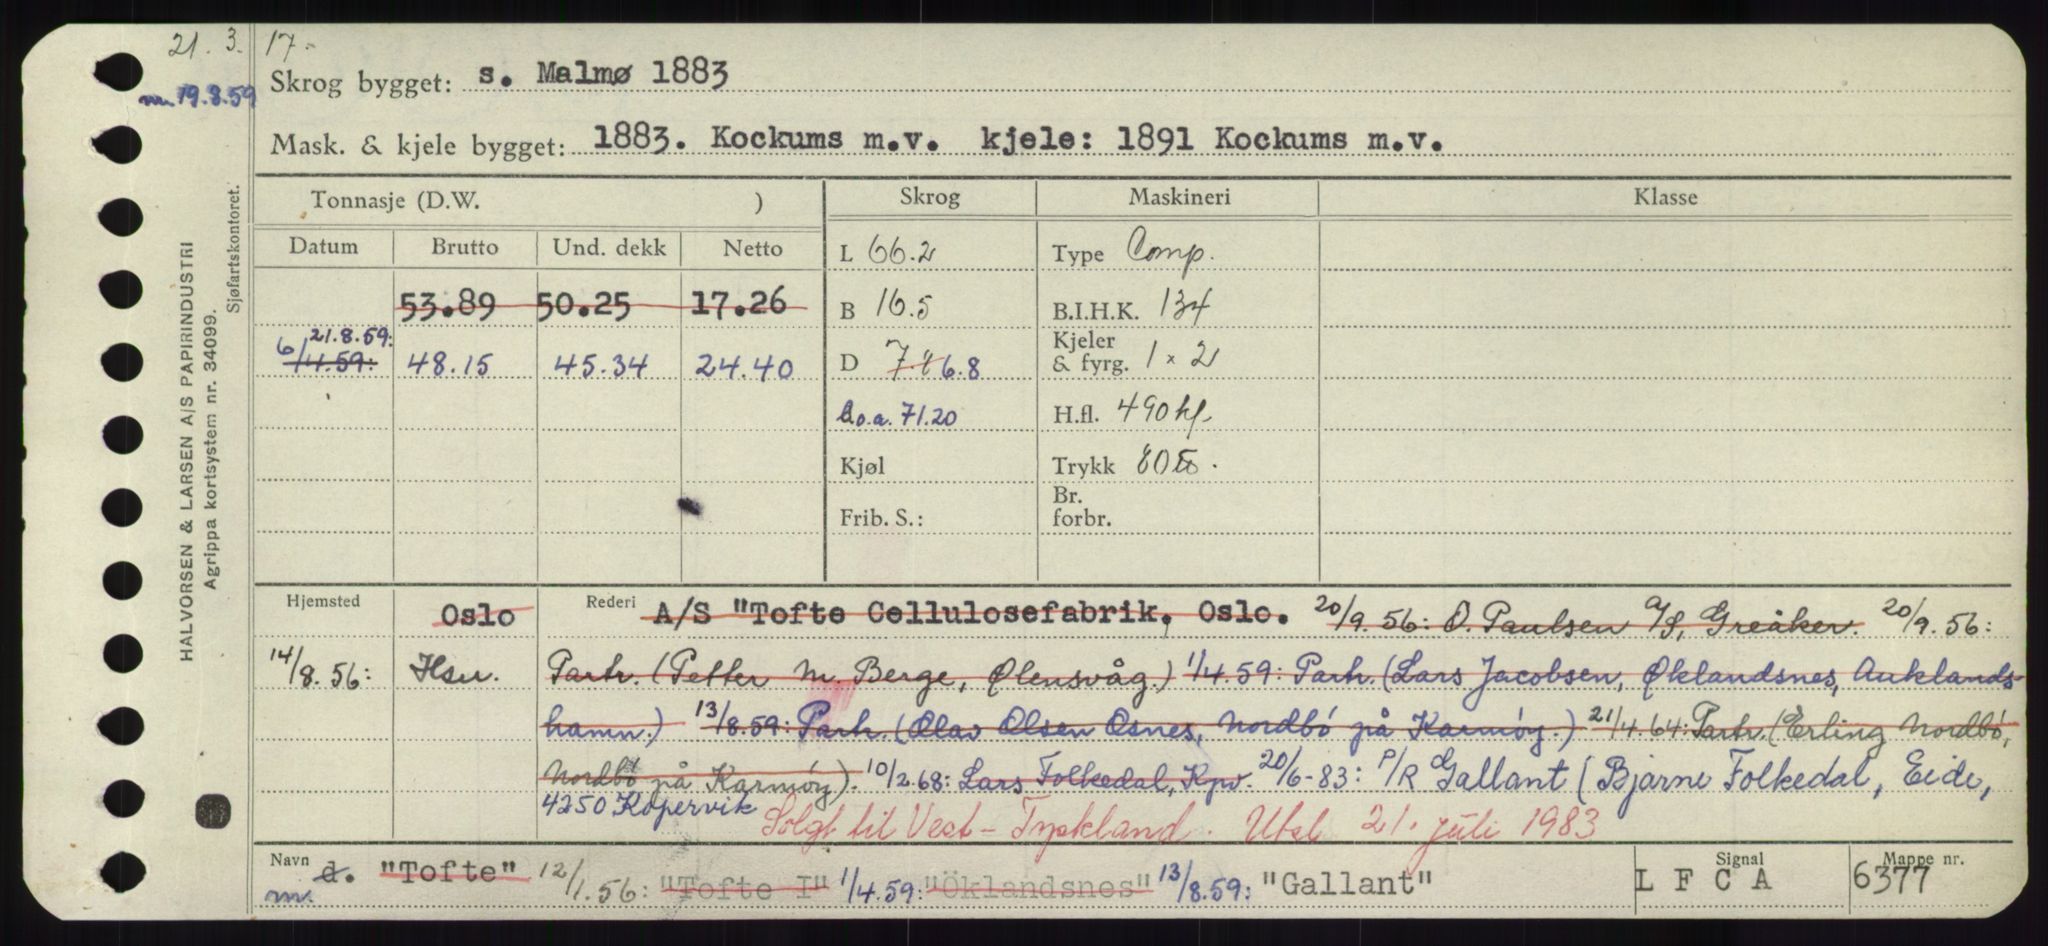 21. 3. 17.
m. 19.8.59
Skrog bygget: s. Malmø 1883
Mask. & kjele bygget: 1883. Kockums m.v. kjele: 1891 Kockums m.v.
HALVORSEN & LARSEN A/S PAPIRINDUSTRI
Agrippa kortsystem nr. 34099.
Sjøfartskontoret.
Tonnasje (D.W. ) Skrog Maskineri Klasse
Datum Brutto Und. dekk Netto L 66.2 Type Comp.
53.89 50.25 17.26 B 16.5 B.I.H.K. 134
21.8.59:
6/4.59: 48.15 45.34 24.40 D 7.8 6.8 Kjeler & fyrg. 1 x 2
L.o.a. 71.20 H.fl. 490 kf.
Kjøl Trykk 80 lb.
Frib. S.: Br. forbr.
Hjemsted Oslo Rederi A/S "Tofte Cellulosefabrik, Oslo. 20/9.56: O. Paulsen A/S, Greåker. 20/9.56:
14/8.56: Hsu. Partr. (Petter M. Berge, Ølensvåg.) 1/4.59: Partr. (Lars Jacobsen, Øklandsnes, Auklands-
hamn.) 13/8.59: Partr. (Olav Olsen Osnes, Nordbö på Karmöy.) 21/4.64: Partr. (Erling Nordbö,
Nordbö på Karmöy). 10/2.68: Lars Folkedal, Kpv. 20/6-83: P/R Gallant (Bjarne Folkedal, Eide,
4250 Kopervik Solgt til Vest-Tyskland. Utsl 21. juli 1983
Navn d. "Tofte" 12/1.56: "Tofte I" 1/4.59: "Öklandsnes" 13/8.59: "Gallant" Signal L F C A Mappe nr. 6377
m.